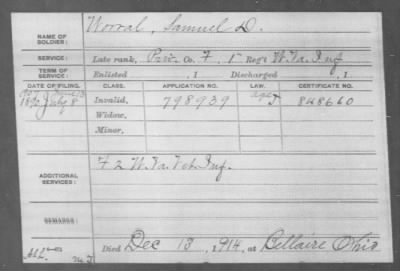 NAME OF SOLDIER: Worral, Samuel D.
SERVICE: Late rank, Priv. Co. F, 1" Reg't W. Va. Inf
TERM OF SERVICE: Enlisted , 1 Discharged , 1
DATE OF FILING. CLASS. APPLICATION NO. LAW. CERTIFICATE NO.
1890 July 8 Invalid, 798939 848660
Widow,
Minor,
ADDITIONAL SERVICES: F 2 W. Va Vet. Inf.
REMARKS:
Died Dec 13, 1914, at Bellaire Ohio